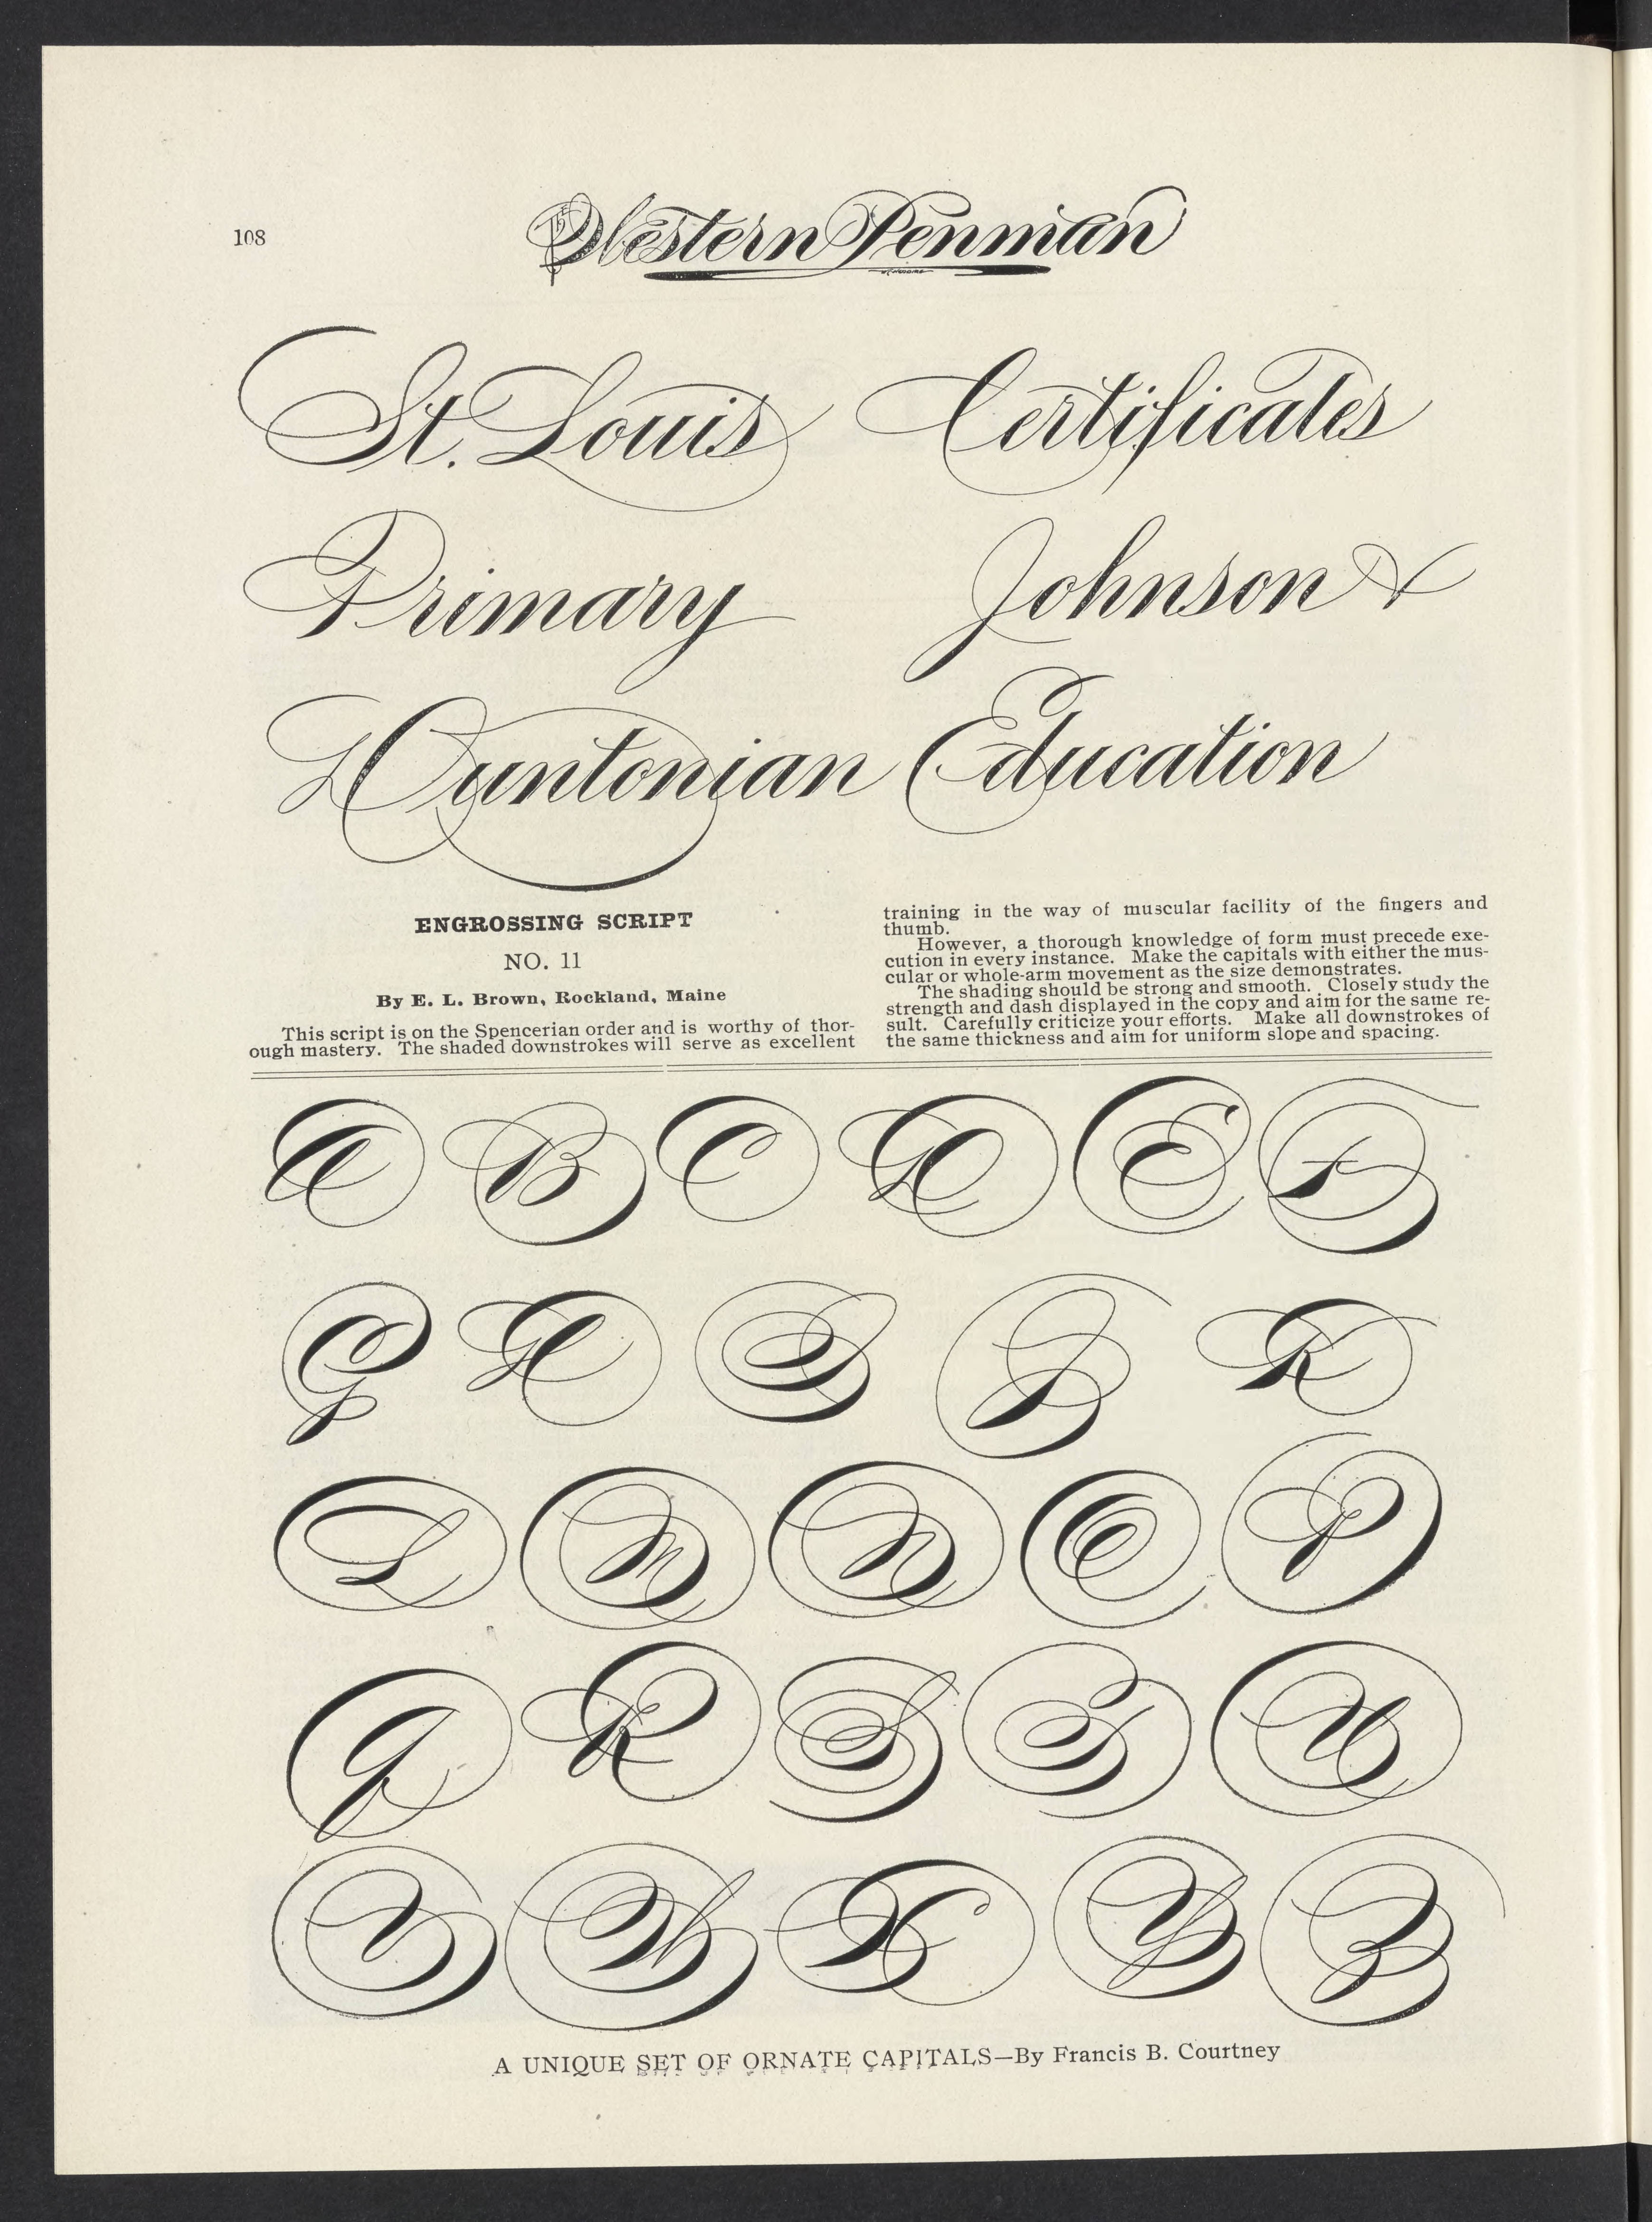 108
The Western Penman
St. Louis Certificates
Primary Johnson &
Duntonian Education
ENGROSSING SCRIPT
NO. 11
By E. L. Brown, Rockland, Maine
This script is on the Spencerian order and is worthy of thor-
ough mastery. The shaded downstrokes will serve as excellent
training in the way of muscular facility of the fingers and
thumb.
However, a thorough knowledge of form must precede exe-
cution in every instance. Make the capitals with either the mus-
cular or whole-arm movement as the size demonstrates.
The shading should be strong and smooth. Closely study the
strength and dash displayed in the copy and aim for the same re-
sult. Carefully criticize your efforts. Make all downstrokes of
the same thickness and aim for uniform slope and spacing.
A B C D E F
G H I J K
L M N O P
Q R S T U
V W X Y Z
A UNIQUE SET OF ORNATE CAPITALS—By Francis B. Courtney